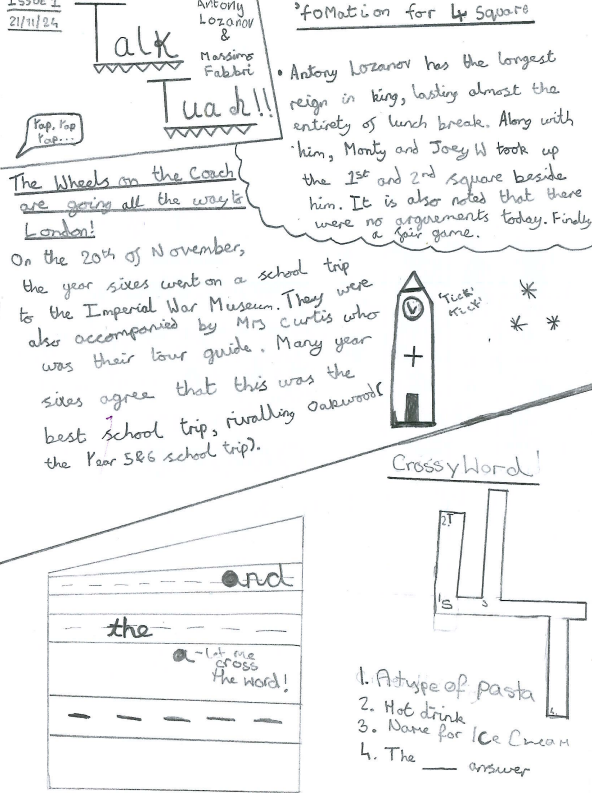 ISSUE 1
21/11/24
Talk
Tuah!!
Antony
Lozanov
&
Massimo
Fabbri
Yap, Yap
Yap...
'foMation for 4 Square
• Antony Lozanov has the longest
reign in king, lasting almost the
entirety of lunch break. Along with
him, Monty and Joey W took up
the 1st and 2nd square beside
him. It is also noted that there
were no arguements today. Finally
a fair game.
The Wheels on the Coach
are going all the way to
London!
On the 20th of November,
the year sixes went on a school trip
to the Imperial War Museum. They were
also accompanied by Mrs Curtis who
was their tour guide. Many year
sixes agree that this was the
best school trip, rivalling Oakwood(
the Year 5&6 school trip).
'Tick'
Crossy Word!
2.T
1S
3
4.
1. A type of pasta
2. Hot drink
3. Name for Ice Cream
4. The ___ answer
and
the
a - let me
cross
the word!